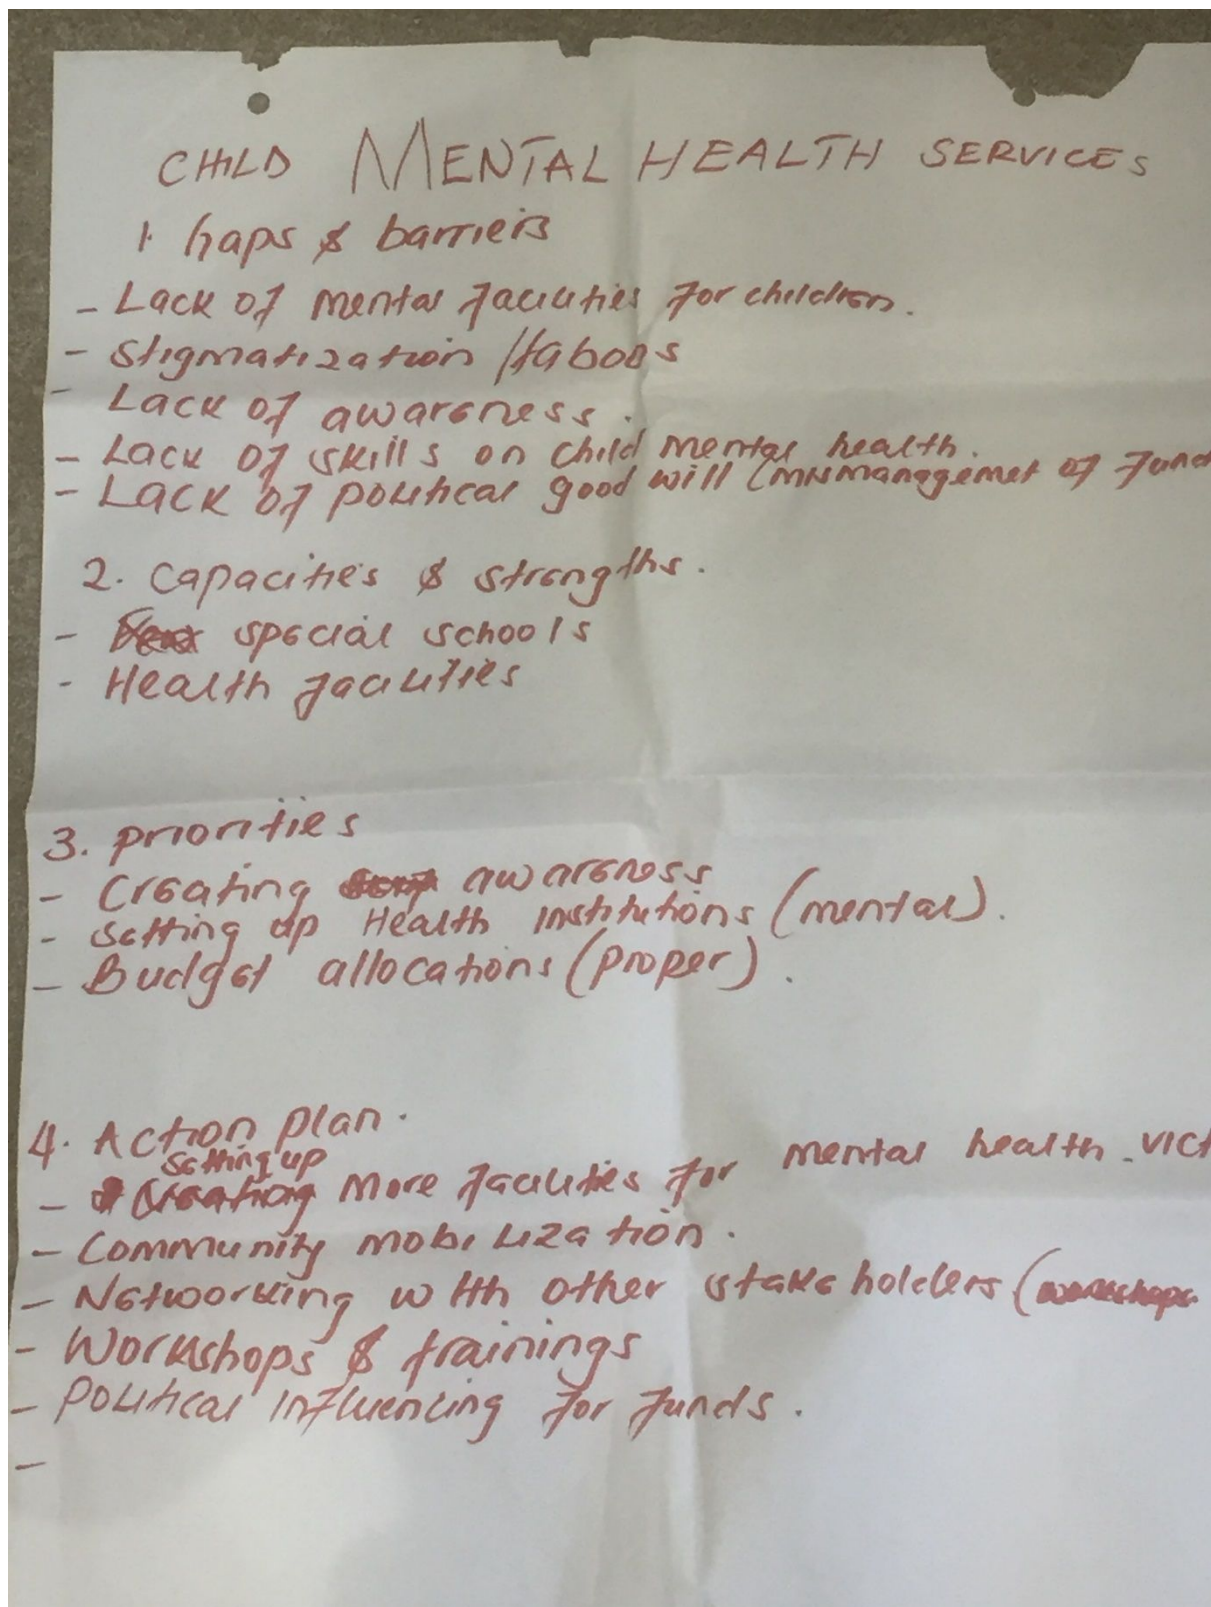 CHILD MENTAL HEALTH SERVICES
1. Gaps & barriers
- Lack of mental facilities for children.
- Stigmatization / taboos
- Lack of awareness.
- Lack of skills on child mental health.
- Lack of political good will (mismanaggemet of fund
2. Capacities & strengths.
- special schools
- Health facilities
3. Priorities
- Creating awareness
- Setting up Health Institutions (mental).
- Budget allocations (proper).
4. Action plan.
setting up
- more facilities for mental health vict
- Community mobilization.
- Networking with other stake holders (workshops
- Workshops & trainings
- Political influencing for funds.
-